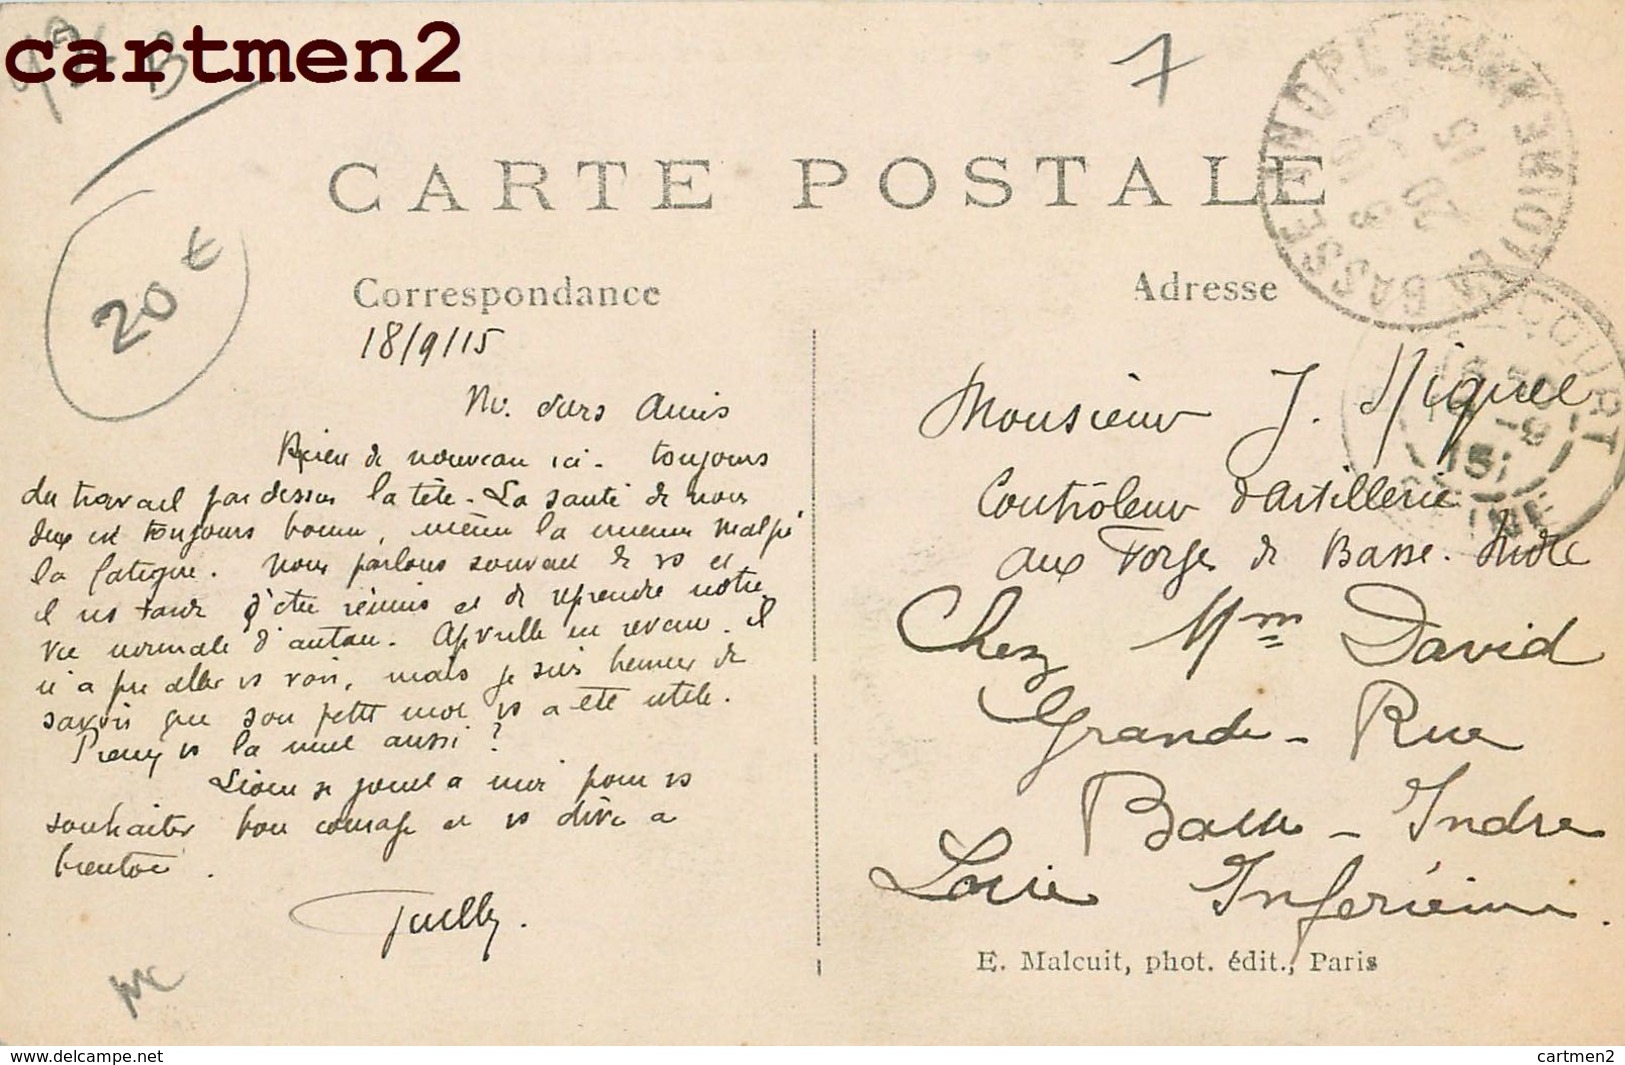 cartmen2
B
7
20 €
CARTE POSTALE
BASSE-INDRE LOIRE
20
15
COURT
Correspondance
18/9/15
Adresse
Amis
Rien de nouveau ici. toujours
du travail par dessus la tête. La santé de nous
deux est toujours bonne, même la mienne malgré
la fatigue. Nous parlons souvent de vs et
il ns tarde d'être réunis et de reprendre notre
vie normale d'antan. est revenu. il
n'a pu aller vs voir, mais je suis heureux de
savoir que son petit mot vs a été utile.
vs la nuit aussi ?
se joint à moi pour vs
souhaiter bon courage et vs dire à
bientôt.
Monsieur J. Miquel
Contrôleur d'Artillerie
aux Forges de Basse-Indre
Chez Mme David
Grande-Rue
Basse-Indre
Loire Inférieure.
E. Malcuit, phot. édit., Paris
www.delcampe.net
cartmen2